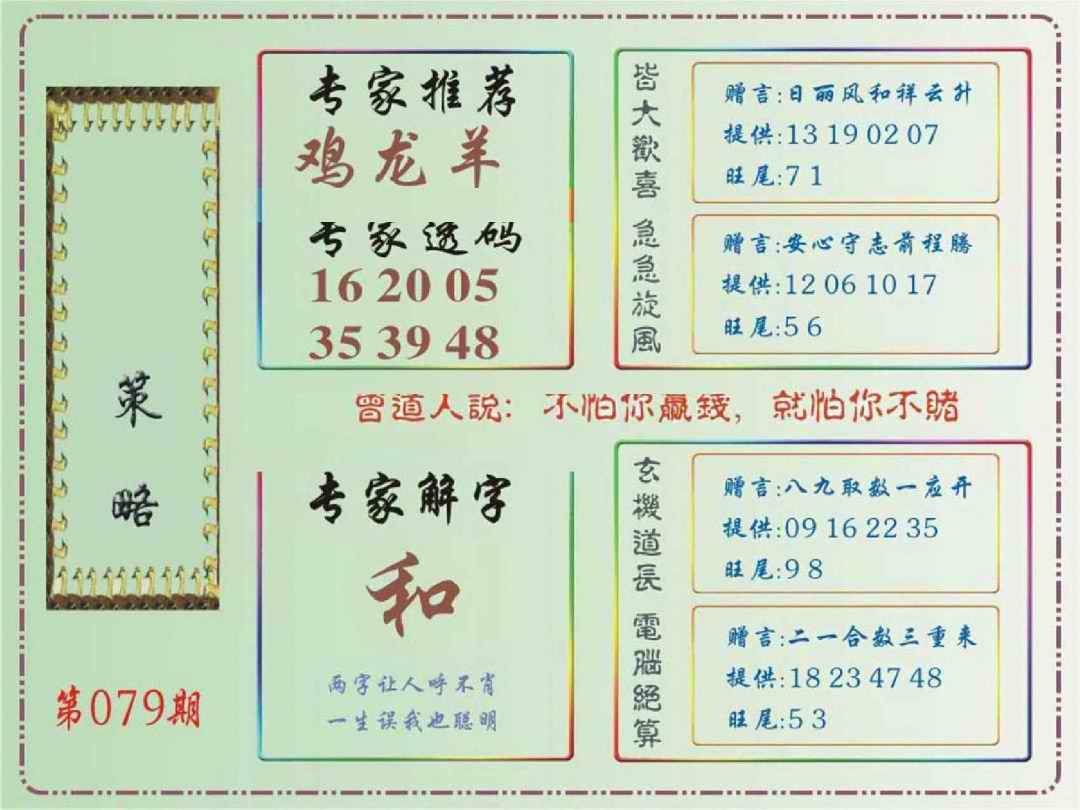 策
略
第079期
专家推荐
鸡龙羊
专家透码
16 20 05
35 39 48
皆大歡喜
赠言:日丽风和祥云升
提供:13 19 02 07
旺尾:7 1
急急旋風
赠言:安心守志前程腾
提供:12 06 10 17
旺尾:5 6
曾道人說: 不怕你贏錢, 就怕你不賭
专家解字
和
两字让人呼不肖
一生误我也聪明
玄機道長
赠言:八九取数一应开
提供:09 16 22 35
旺尾:9 8
電腦絕算
赠言:二一合数三重来
提供:18 23 47 48
旺尾:5 3